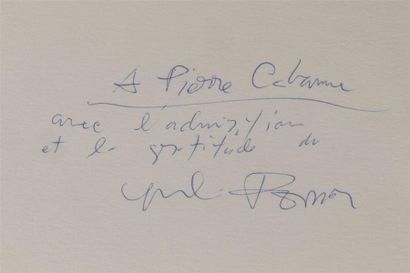 A Pierre Cabanne
avec l'admiration
et la gratitude du